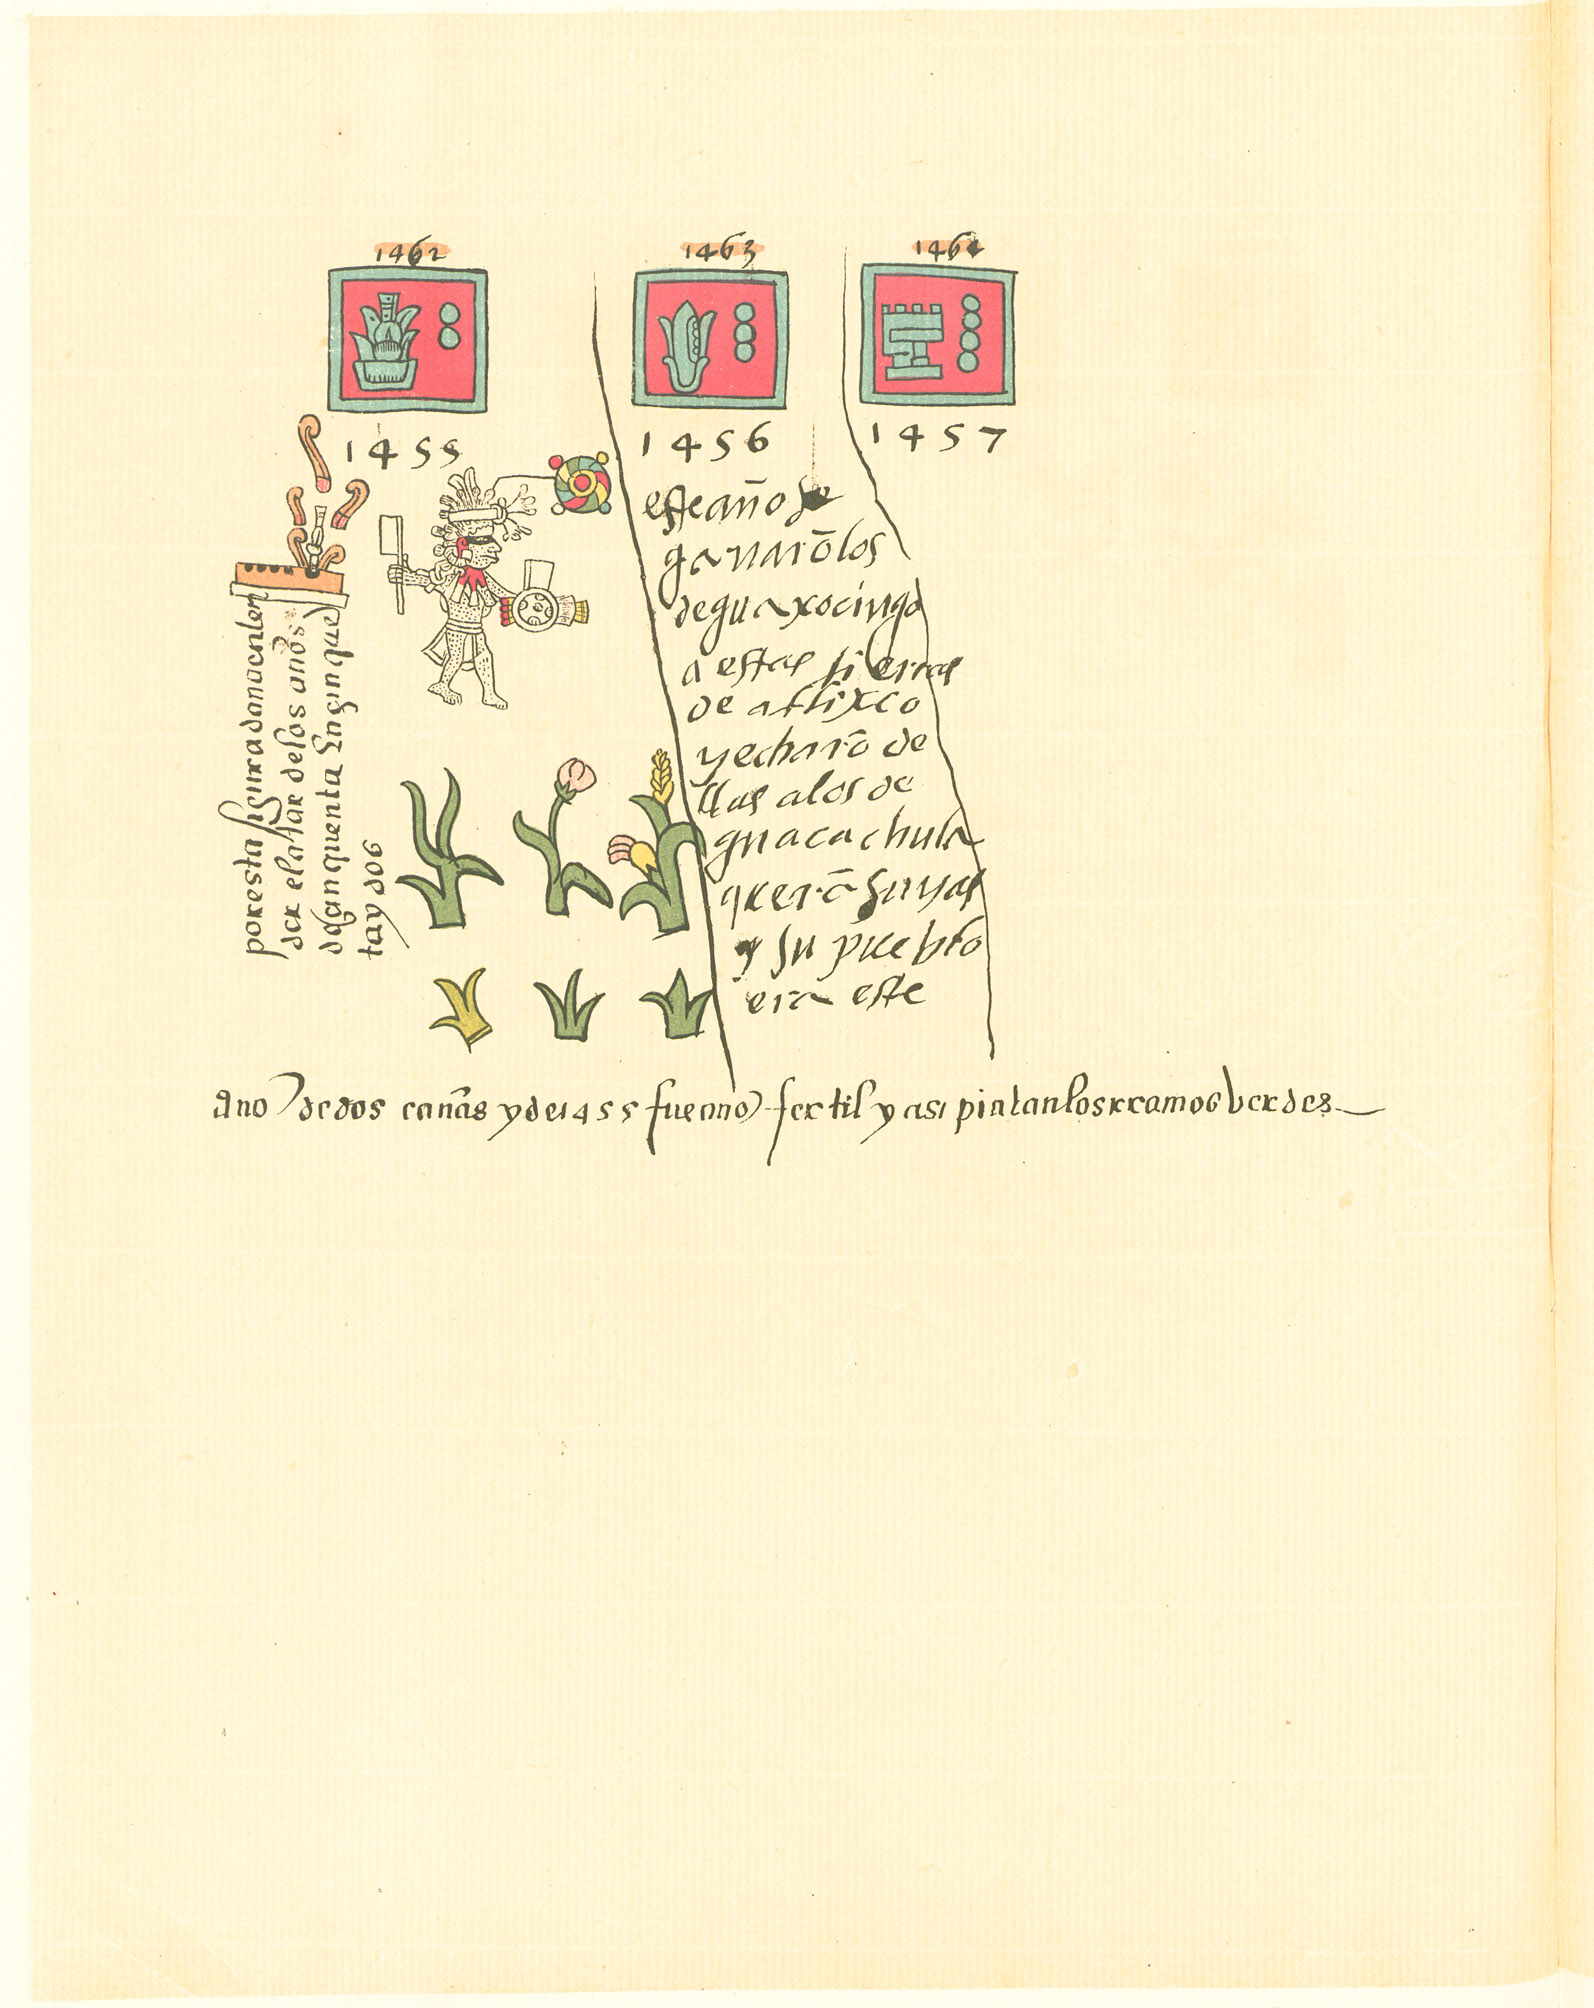 1462
1463
1464
1455
1456
1457
por esta figura dan a enten
der el atar de los años
de çinquenta En çinque
ta y dos
este año se
ganarō los
de guaxocingo
a estas tierras
de atlixco
y echarō de
llas a los de
guacachula
q̄ erā suyas
y su pueblo
era este
Ano de dos cañas y de 1455 fue año fertil y asi pintan los rramos verdes